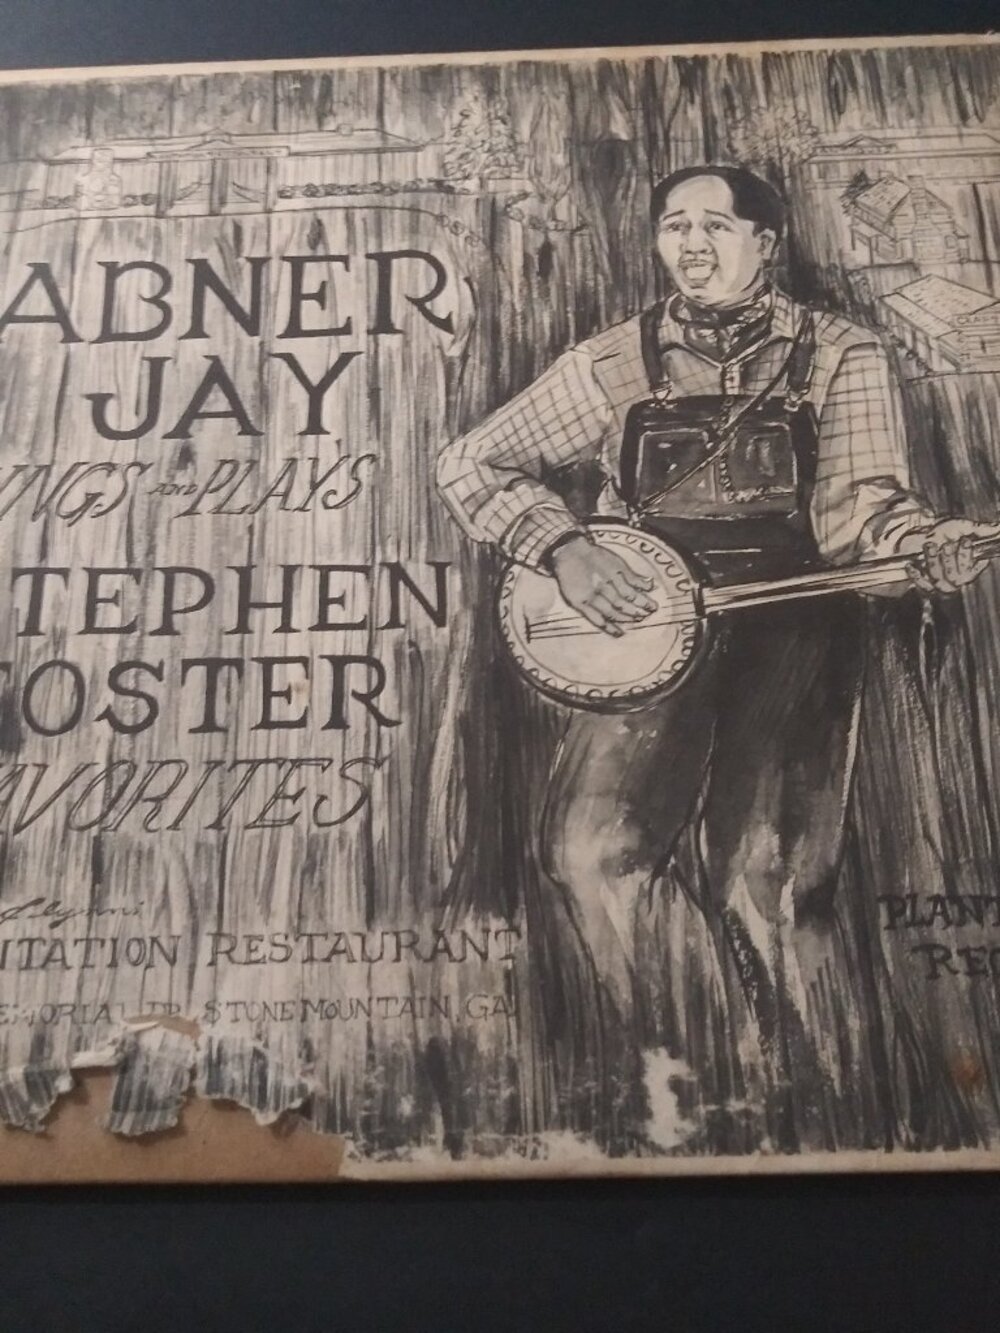 ABNER
JAY
INGS AND PLAYS
STEPHEN
FOSTER
AVORITES
TATION RESTAURANT
EMORIAL DR. STONE MOUNTAIN, GA.
PLANT
REC